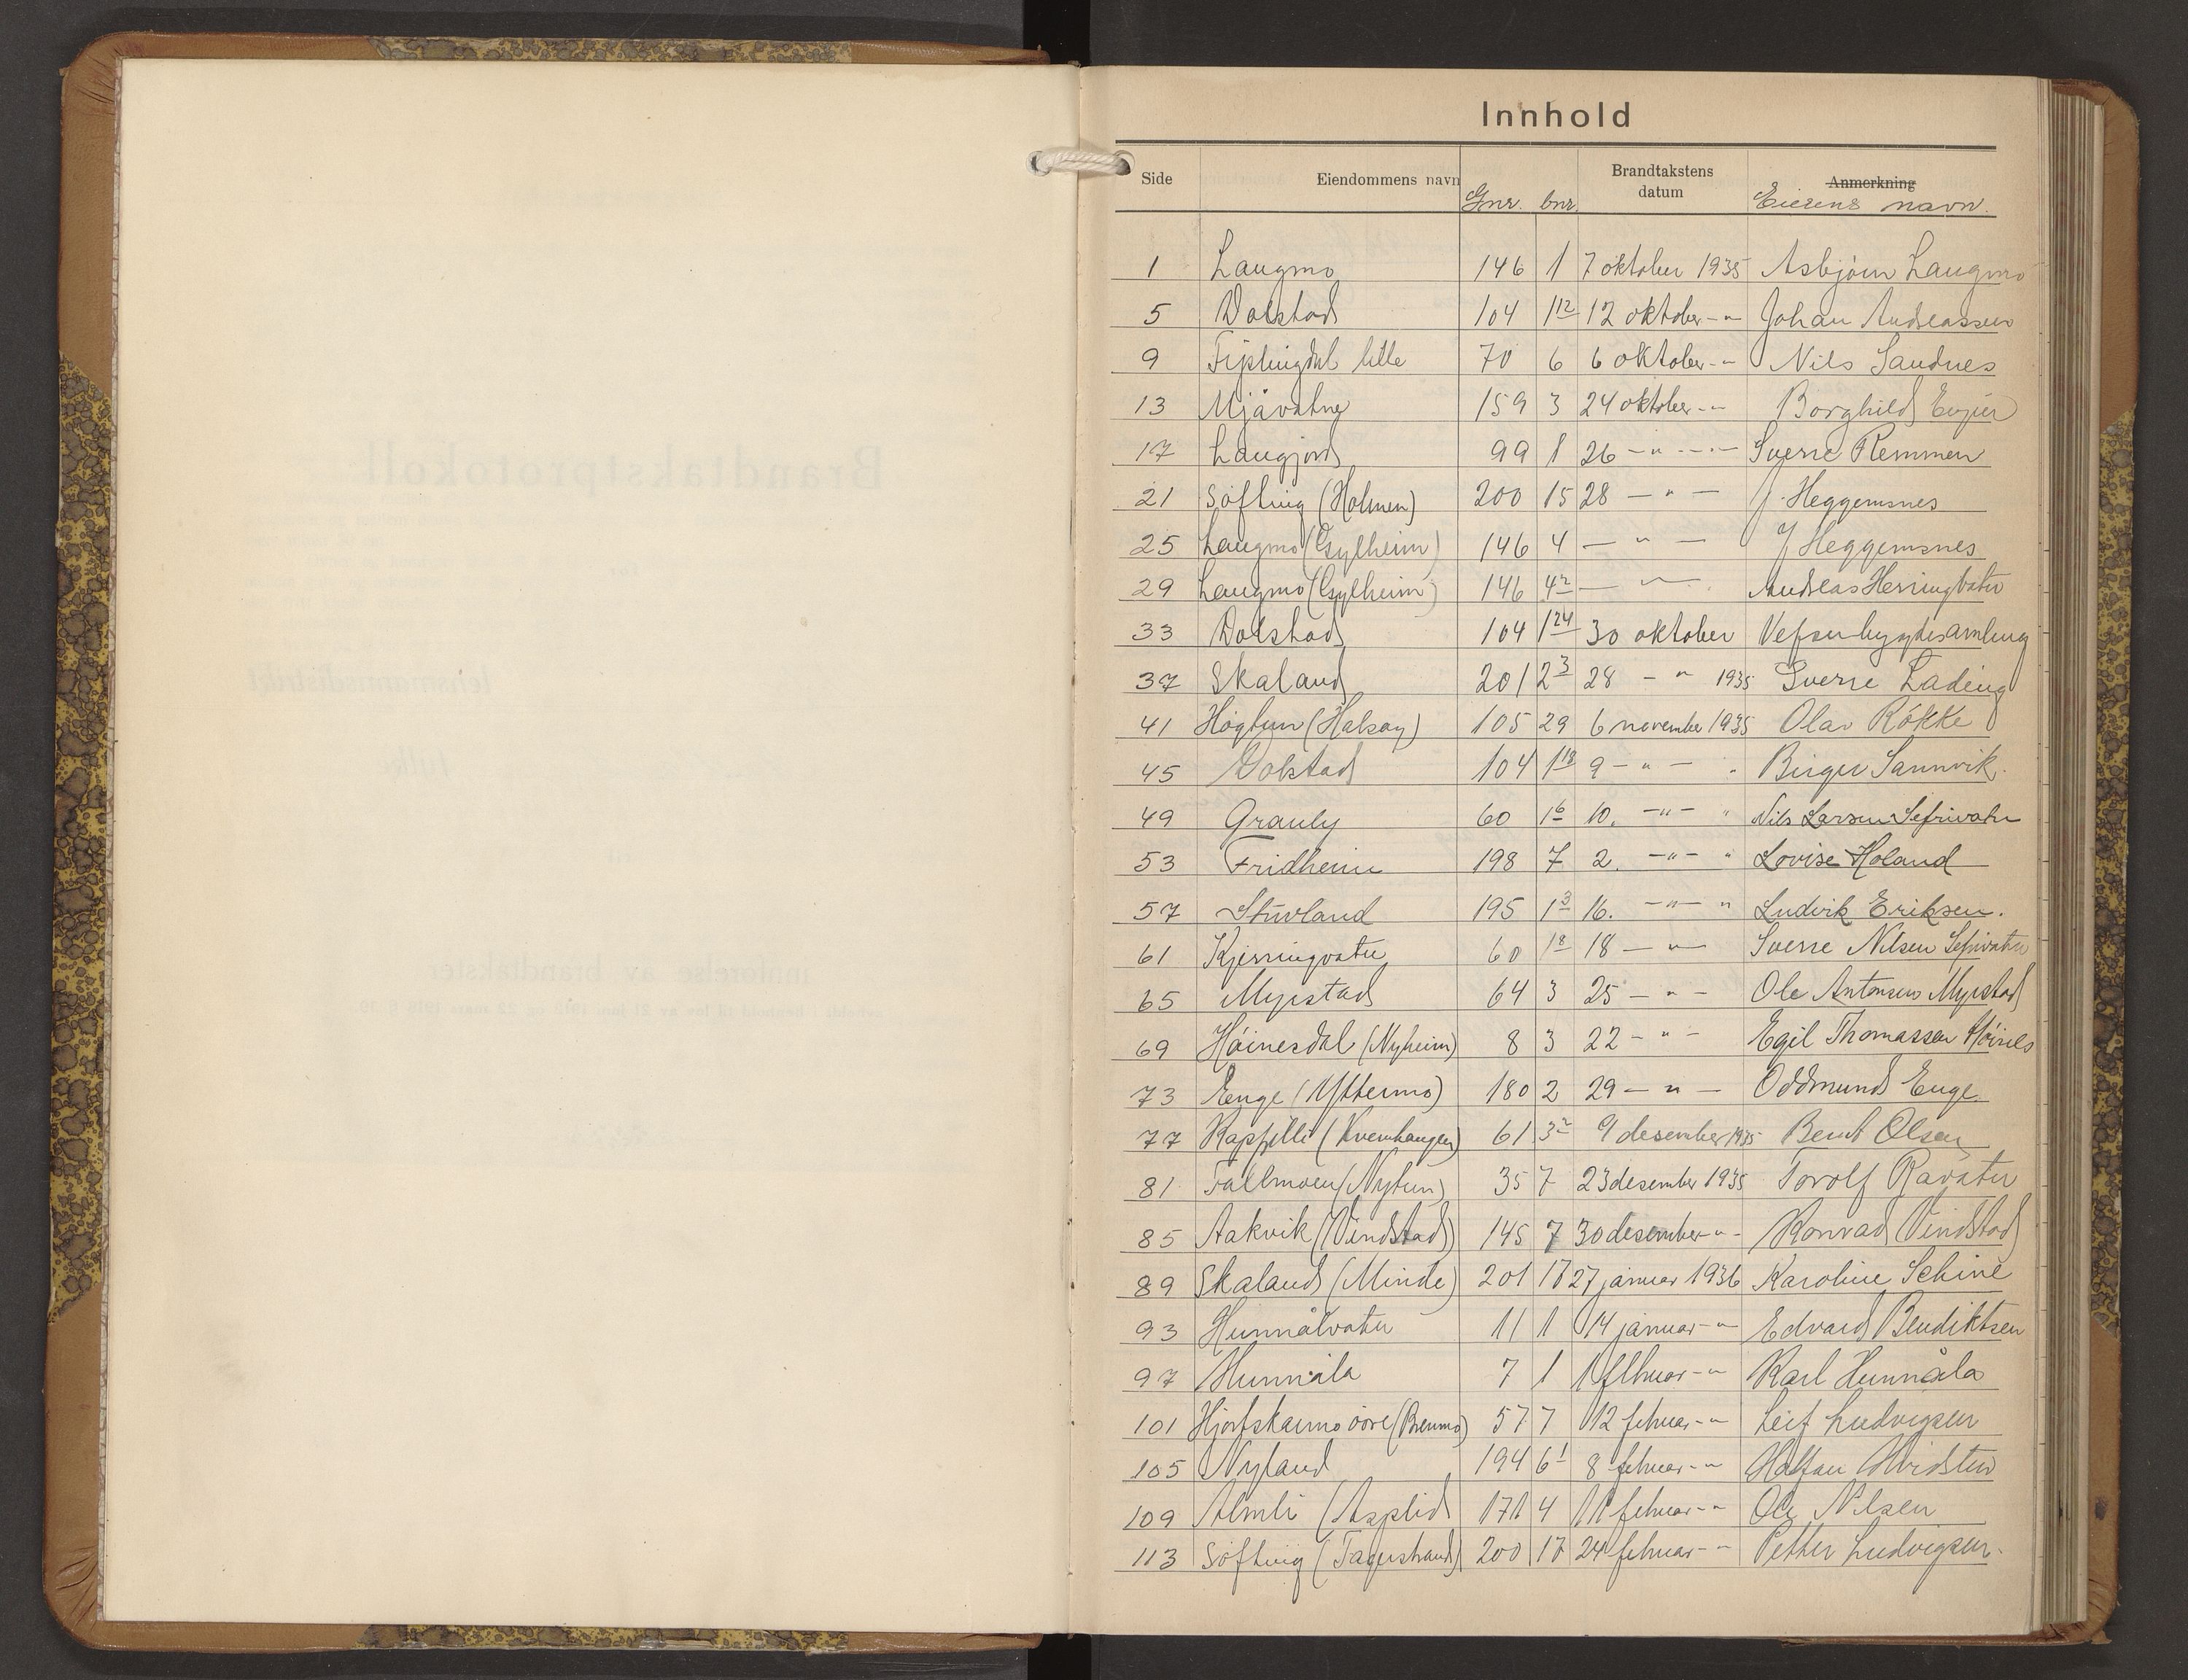 Innhold
Side Eiendommens navn Gnr. bnr. Brandtakstens datum Anmerkning Eierens navn.
1 Langmo 146 1 7 oktober 1935 Asbjörn Langmo
5 Dolstad 104 1 12 12 oktober -"- Johan Andreassen
9 Fiplingdal lille 70 6 6 oktober -"- Nils Sandnes
13 Mjåvatne 159 3 24 oktober -"- Borghild Evjen
17 Langjord 99 1 26 -"- -"- Sverre Remmen
21 Söfting (Holmen) 200 15 28 -"- J. Heggemsnes
25 Langmo (Gylheim) 146 4 -"- J Heggemsnes
29 Langmo (Gylheim) 146 4 2 -"- Andreas Herringbotn
33 Dolstad 104 1 24 30 oktober Vefsn bygdesamling
37 Skaland 201 2 3 28 -" 1935 Sverre Lading
41 Högtun (Halsöy) 105 29 6 november 1935 Olav Rökke
45 Dolstad 104 1 18 9 -"- " Birger Sannvik.
49 Granly 60 1 6 10. -"- " Nils Larsen Sefrivatn
53 Fridheim 198 7 2. -"- " Lovise Holand
57 Stuvland 195 1 3 16. -"- " Ludvik Eriksen.
61 Kjerringvatn 60 1 8 18 -"- Sverre Nilsen Sefrivatn
65 Myrstad 64 3 25 -"- Ole Antonsen Myrstad
69 Höinesdal (Nyheim) 8 3 22 -"- Egil Thomassen
73 Enge (Yttermo) 180 2 29 -"- Oddmund Enge.
77 Kappfjelli (Kvernhaugen) 61 3 2 9 desember 1935 Bernt Olsen
81 Fallmoen (Nytun) 35 7 23 desember 1935 Torolf Råvatn
85 Aakvik (Vindstad) 145 7 30 desember -"- Konrad Vindstad
89 Skaland (Minde) 201 17 27 januar 1936 Karoline Schine
93 Hunnålvatn 11 1 14 januar -"- Edvard Bendiktsen
97 Hunnåla 7 1 1 februar -"- Karl Hunnåla
101 Hjortskarmo övre (Brenmo) 57 7 12 februar -"- Leif Ludvigsen
105 Nyland 194 6 1 8 februar -"- Halfan Hvidsten
109 Almli (Asplid 171 4 11 februar -"- Ole Nilsen
113 Söfting (Fagerstrand) 200 17 24 februar -"- Petter Ludvigsen.